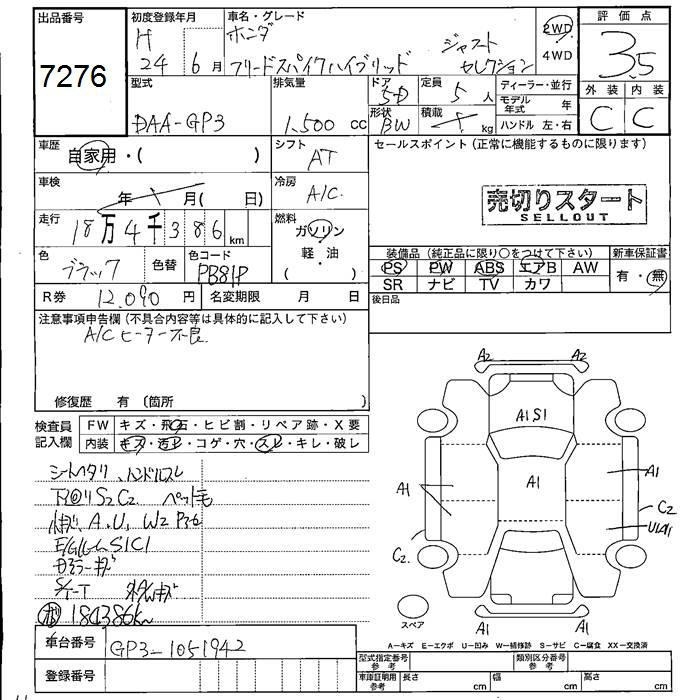 出品番号
7276
初度登録年月
H
24 6月
車名・グレード
ホンダ
フリードスパイクハイブリッド
ジャスト
セレクション
2WD
4WD
評価点
3.5
外装 内装
C C
型式
DAA-GP3
排気量
1,500 cc
ドア
5D
形状
BW
定員
5人
積載
kg
ディーラー・並行
モデル年式 年
ハンドル 左・右
車歴
自家用・( )
シフト
AT
セールスポイント(正常に機能するものに限ります)
売切りスタート
SELLOUT
車検
年 月( 日)
冷房
A/C
走行
18万4千386km
燃料
ガソリン
軽・油
( )
色
ブラック
色替
色コード
PB81P
装備品(純正品に限り○をつけて下さい)
PS PW ABS エアB AW
SR ナビ TV カワ
新車保証書
有・無
R券 12,090円
名変期限 月 日
後日品
注意事項申告欄(不具合内容等は具体的に記入して下さい)
A/Cヒーター不良
修復歴 有(箇所 )
検査員
記入欄
FW キズ・飛石・ヒビ割・リペア跡・X要
内装 キズ・汚レ・コゲ・穴・スレ・キレ・破レ
シートヘタリ、ハンドルスレ
下廻りS2C2 ペット毛
小キズ、A、U、W2
S1C1
ドアミラーキズ
184386km
A2 A2
A1S1
A1
A1
A1
C2
U1A1
C2
A1 A1
スペア
A-キズ E-エクボ U-凹み W-補修跡 S-サビ C-腐食 XX-交換済
車台番号
GP3-1051942
登録番号
型式指定番号
参考
類別区分番号
参考
車庫証明用
参考
長さ cm 幅 cm 高さ cm